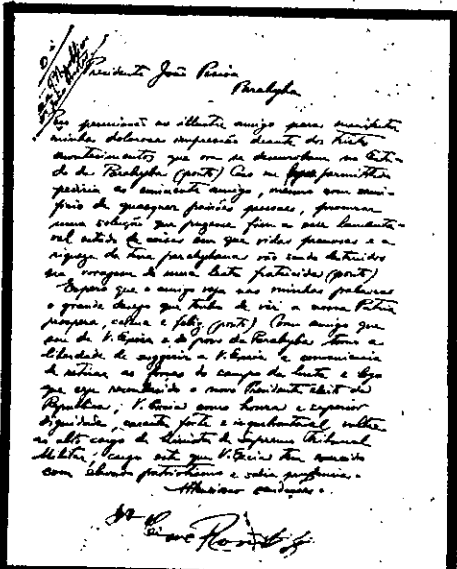 Presidente João Pessoa
Parahyba
Peço permissão ao illustre amigo para manifestar
minha dolorosa impressão deante dos tristes
acontecimentos que ora se desenrolam no Esta-
do da Parahyba (ponto) Caso me fosse permittido
pediria ao eminente amigo, mesmo com sacri-
ficio de quaesquer paixões pessoaes, procurar
uma solução que puzesse fim a esse lamenta-
vel estado de coisas em que vidas preciosas e a
riqueza da terra parahybana vão sendo destruidos
na voragem de uma lucta fratricida (ponto)
Espero que o amigo veja nas minhas palavras
o grande desejo que tenho de vêr a nossa Patria
prospera, calma e feliz (ponto) Como amigo que
sou de V. Excia e do povo da Parahyba tomo a
liberdade de suggerir a V. Excia a conveniencia
de retirar as forças do campo da lucta e logo
que seja reconhecido o novo Presidente eleito da
Republica, V. Excia como homem de superior
dignidade, caracter forte e inquebrantavel voltar
ao alto cargo de Ministro do Supremo Tribunal
Militar, cargo este que V. Excia tem exercido
com elevado patriotismo e sabia prudencia.
Attenciosas